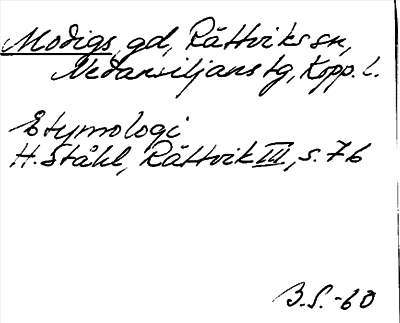 Modigs, gd, Rättviks sn,
Nedansiljans tg, Kopp. l.
Etymologi
H. Ståhl, Rättvik III, s. 76
B.S. -60